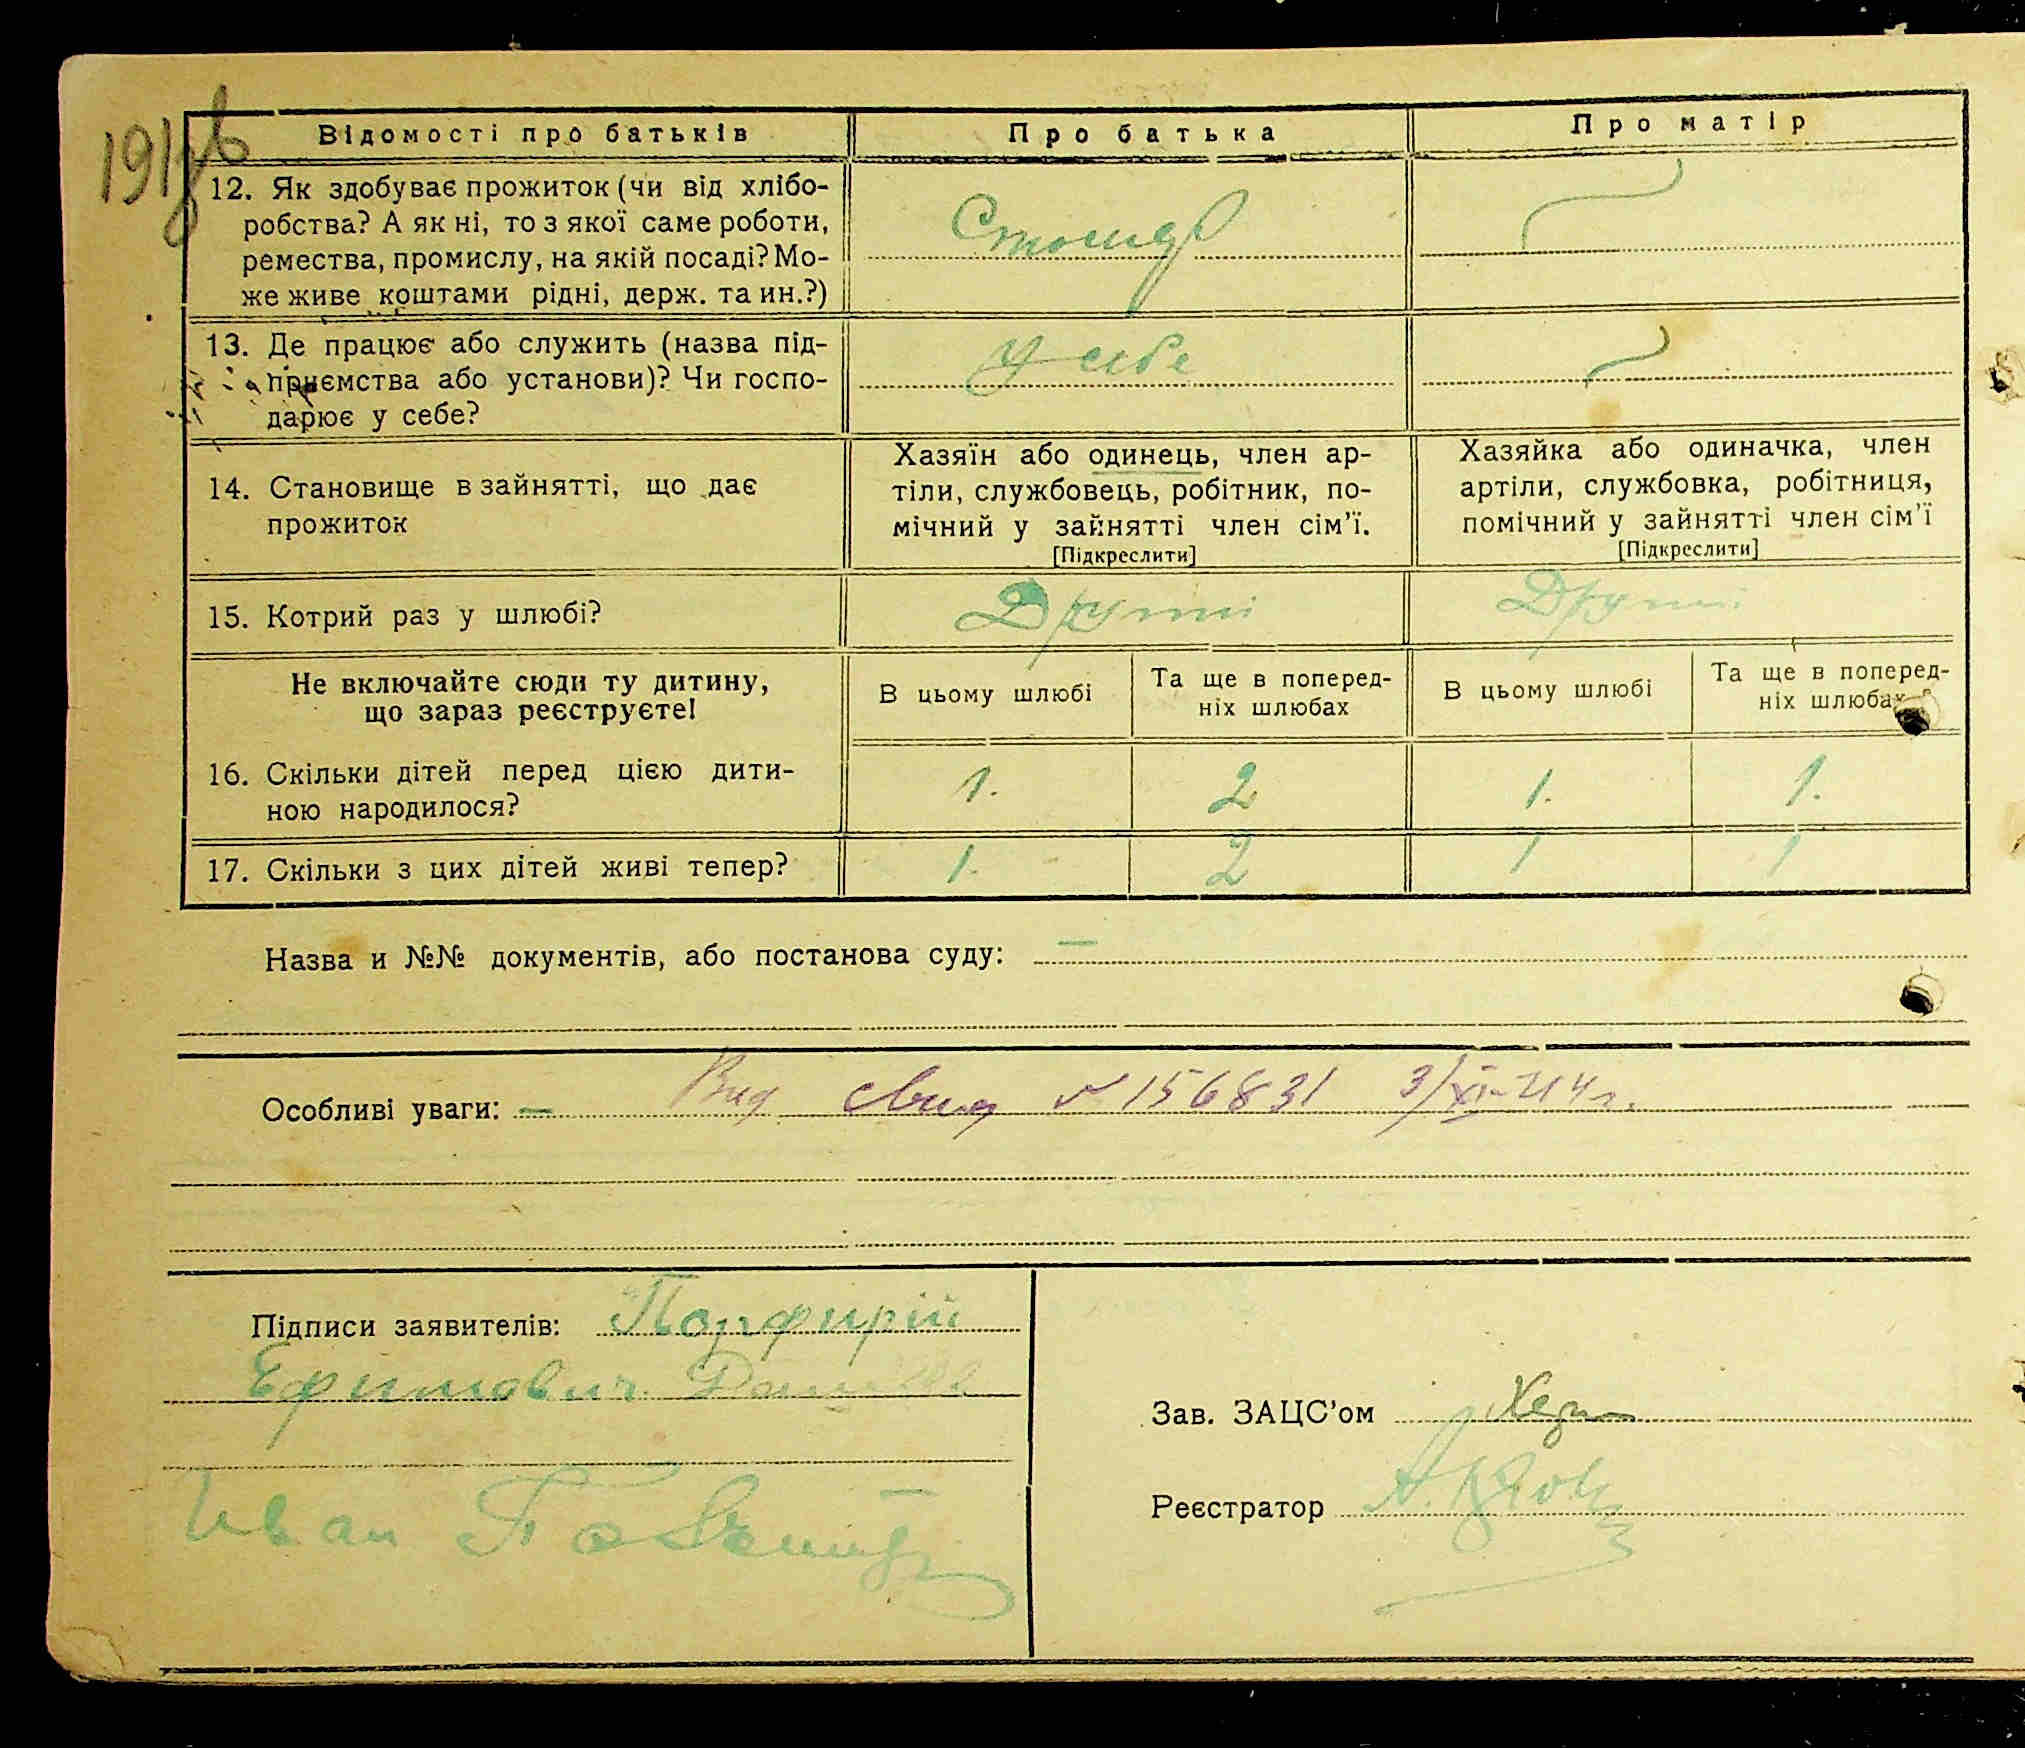 Відомості про батьків
Про батька
Про матір
12. Як здобуває прожиток (чи від хлібо-
робства? А як ні, то з якої саме роботи,
ремества, промислу, на якій посаді? Мо-
же живе коштами рідні, держ. та ин.?)
13. Де працює або служить (назва під-
приємства або установи)? Чи госпо-
дарює у себе?
у себе
14. Становище в зайнятті, що дає
прожиток
Хазяїн або одинець, член ар-
тіли, службовець, робітник, по-
мічний у зайнятті член сім'ї.
[Підкреслити]
Хазяйка або одиначка, член
артіли, службовка, робітниця,
помічний у зайнятті член сім'ї
[Підкреслити]
15. Котрий раз у шлюбі?
Не включайте сюди ту дитину,
що зараз реєструєте!
В цьому шлюбі
Та ще в поперед-
ніх шлюбах
В цьому шлюбі
Та ще в поперед-
ніх шлюбах
16. Скільки дітей перед цією дити-
ною народилося?
1. 2 1. 1.
17. Скільки з цих дітей живі тепер?
1. 2 1 1
Назва и №№ документів, або постанова суду: —
Особливі уваги: — Вид свид № 156831 3/XI-44 г.
Підписи заявителів: Порфирій
Ефимович
Иван
Зав. ЗАЦС'ом
Реєстратор